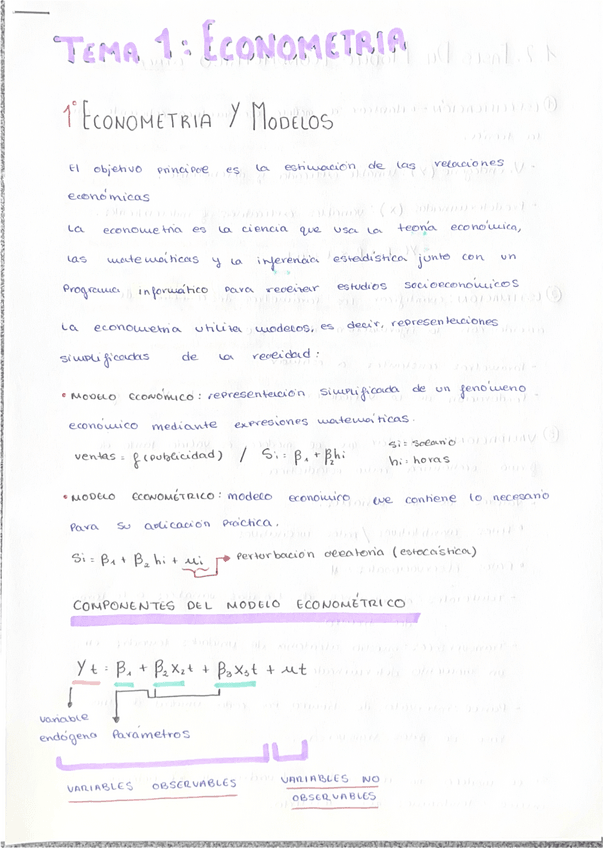 TEMA 1: ECONOMETRIA
1º ECONOMETRIA Y MODELOS
El objetivo principal es la estimación de las relaciones
económicas
La econometria es la ciencia que usa la teoría económica,
las matemáticas y la inferencia estadística junto con un
Programa informático para realizar estudios socioeconómicos
La econometria utiliza modelos, es decir, representaciones
simplificadas de la realidad:
• MODELO ECONÓMICO: representación simplificada de un fenómeno
económico mediante expresiones matemáticas.
ventas = f(publicidad) / Si = β1 + β2hi
Si = salario
hi = horas
• MODELO ECONOMÉTRICO: modelo económico que contiene lo necesario
Para su aplicación práctica.
Si = β1 + β2 hi + μi → Perturbación aleatoria (estocástica)
COMPONENTES DEL MODELO ECONOMÉTRICO
Yt = β1 + β2X2t + β3X3t + μt
variable
endógena Parámetros
VARIABLES OBSERVABLES
VARIABLES NO
OBSERVABLES